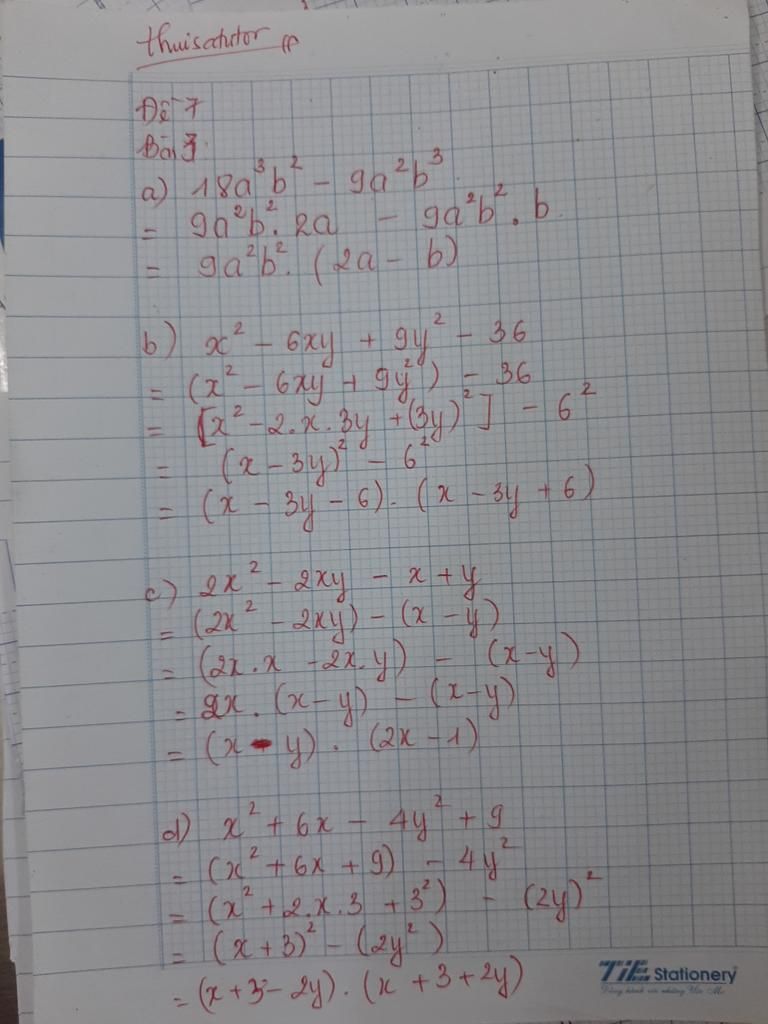 thuisatutor
Đề 7
Bài 3
a) 18a³b² - 9a²b³
= 9a²b². 2a - 9a²b². b
= 9a²b². (2a - b)
b) x² - 6xy + 9y² - 36
= (x² - 6xy + 9y²) - 36
= [x² - 2.x.3y + (3y)²] - 6²
= (x - 3y)² - 6²
= (x - 3y - 6). (x - 3y + 6)
c) 2x² - 2xy - x + y
= (2x² - 2xy) - (x - y)
= (2x.x - 2x.y) - (x-y)
= 2x. (x-y) - (x-y)
= (x - y). (2x - 1)
d) x² + 6x - 4y² + 9
= (x² + 6x + 9) - 4y²
= (x² + 2.x.3 + 3²) - (2y)²
= (x + 3)² - (2y²)
= (x + 3 - 2y). (x + 3 + 2y)
TiE Stationery